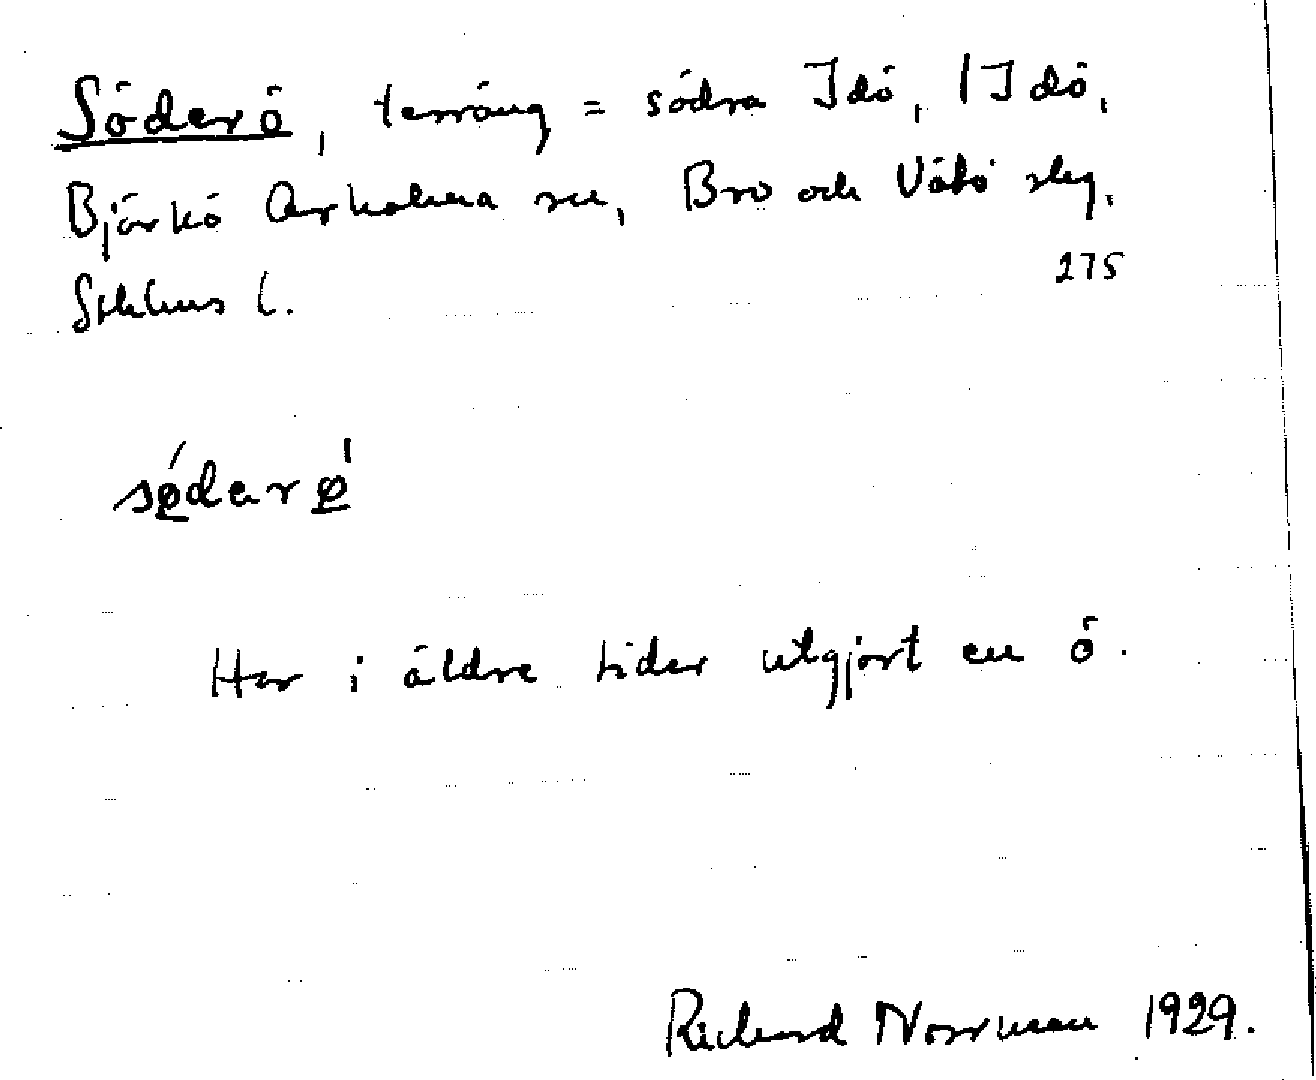 Söderö, terräng = södra Idö, /Idö,
Björkö Arholma sn, Bro och Vätö skg,
Sthlms l. 275
södarö
Har i äldre tider utgjort en ö.
Richard Norrman 1929.